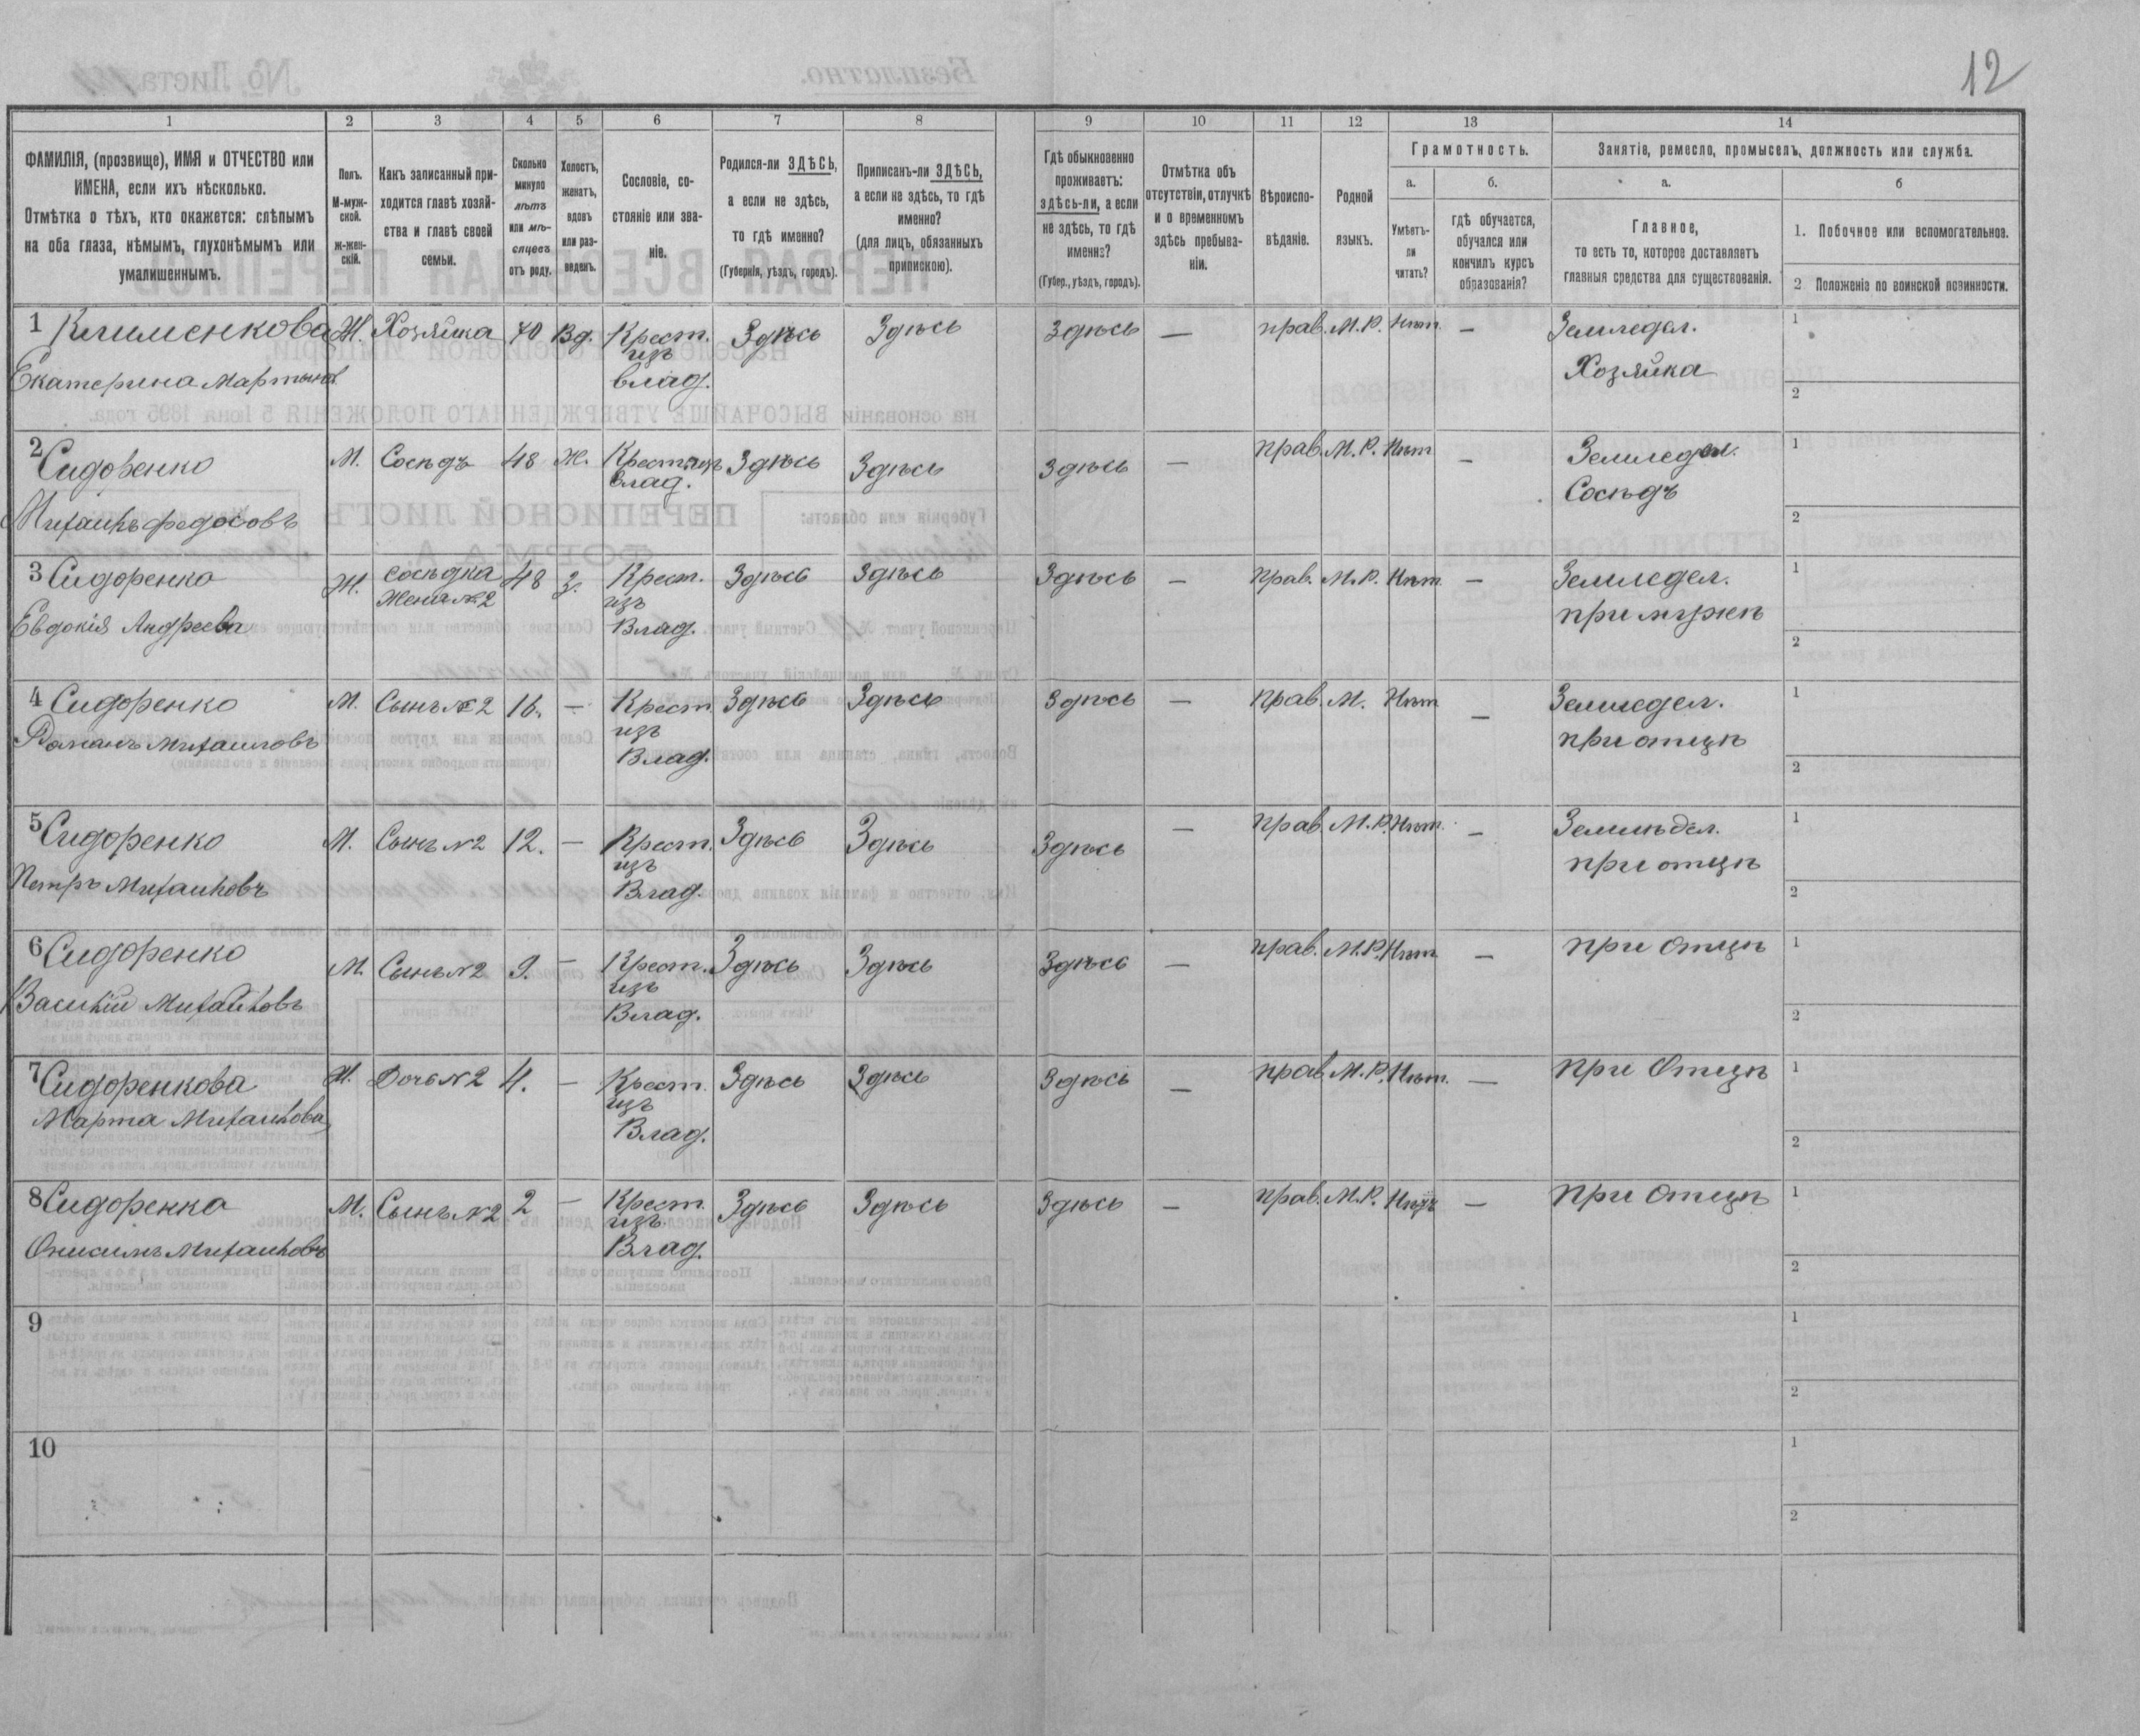 12
1 2 3 4 5 6 7 8 9 10 11 12 13 14
ФАМИЛІЯ, (прозвище), ИМЯ и ОТЧЕСТВО или ИМЕНА, если ихъ нѣсколько.
Отмѣтка о тѣхъ, кто окажется: слѣпымъ на оба глаза, нѣмымъ, глухонѣмымъ или умалишеннымъ.
Полъ. М-муж-ской. Ж-жен-скій.
Какъ записанный при-ходится главѣ хозяй-ства и главѣ своей семьи.
Сколько минуло лѣтъ или мѣ-сяцевъ отъ роду.
Холостъ, женатъ, вдовъ или раз-веденъ.
Сословіе, со-стояніе или зва-ніе.
Родился-ли ЗДѢСЬ, а если не здѣсь, то гдѣ именно? (Губернія, уѣздъ, городъ).
Приписанъ-ли ЗДѢСЬ, а если не здѣсь, то гдѣ именно? (для лицъ, обязанныхъ припискою).
Гдѣ обыкновенно проживаетъ: здѣсь-ли, а если не здѣсь, то гдѣ именно? (Губер., уѣздъ, городъ).
Отмѣтка объ отсутствіи, отлучкѣ и о временномъ здѣсь пребыва-ніи.
Вѣроиспо-вѣданіе.
Родной языкъ.
Грамотность.
а. Умѣетъ-ли читать?
б. гдѣ обучается, обучался или кончилъ курсъ образованія?
Занятіе, ремесло, промыселъ, должность или служба.
а. Главное, то есть то, которое доставляетъ главныя средства для существованія.
б
1. Побочное или вспомогательное.
2 Положеніе по воинской повинности.
1 Клименкова Ж. Хозяйка 70 Вд. Крест. Здѣсь Здѣсь Здѣсь — прав. М.Р. Нѣт. — Земледел. 1
Екатерина Мартынов изъ влад. Хозяйка 2
2 Сидоренко М. Сосѣдъ 48 Ж. Крест. изъ Здѣсь Здѣсь Здѣсь — прав. М.Р. Нѣт — Земледел. 1
Михаилъ Федосовъ влад. Сосѣдъ 2
3 Сидоренко Ж. сосѣдка 48 З. Крест. Здѣсь Здѣсь Здѣсь — прав. М.Р. Нѣт. — Земледел. 1
Евдокія Андреева Жена № 2 изъ Влад. при мужѣ 2
4 Сидоренко М. Сынъ № 2 16. — Крест. Здѣсь Здѣсь Здѣсь — прав. М. Нѣт — Земледел. 1
Романъ Михаиловъ изъ Влад. при отцѣ 2
5 Сидоренко М. Сынъ № 2 12. — Крест. Здѣсь Здѣсь Здѣсь — прав. М.Р. Нѣт. — Землѣдел. 1
Петръ Михаиловъ изъ Влад. при отцѣ 2
6 Сидоренко М. Сынъ № 2 9. — Крест. Здѣсь Здѣсь Здѣсь — прав. М.Р. Нѣт — при отцѣ 1
Василій Михаиловъ изъ Влад. 2
7 Сидоренкова Ж. Дочь № 2 4. — Крест. Здѣсь Здѣсь Здѣсь — прав. М.Р. Нѣт. — при Отцѣ 1
Марта Михаилова изъ Влад. 2
8 Сидоренко М. Сынъ № 2 2 — Крест. Здѣсь Здѣсь Здѣсь — прав. М.Р. Нѣтъ — при Отцѣ 1
Онисимъ Михаиловъ изъ Влад. 2
9 1
2
10 1
2